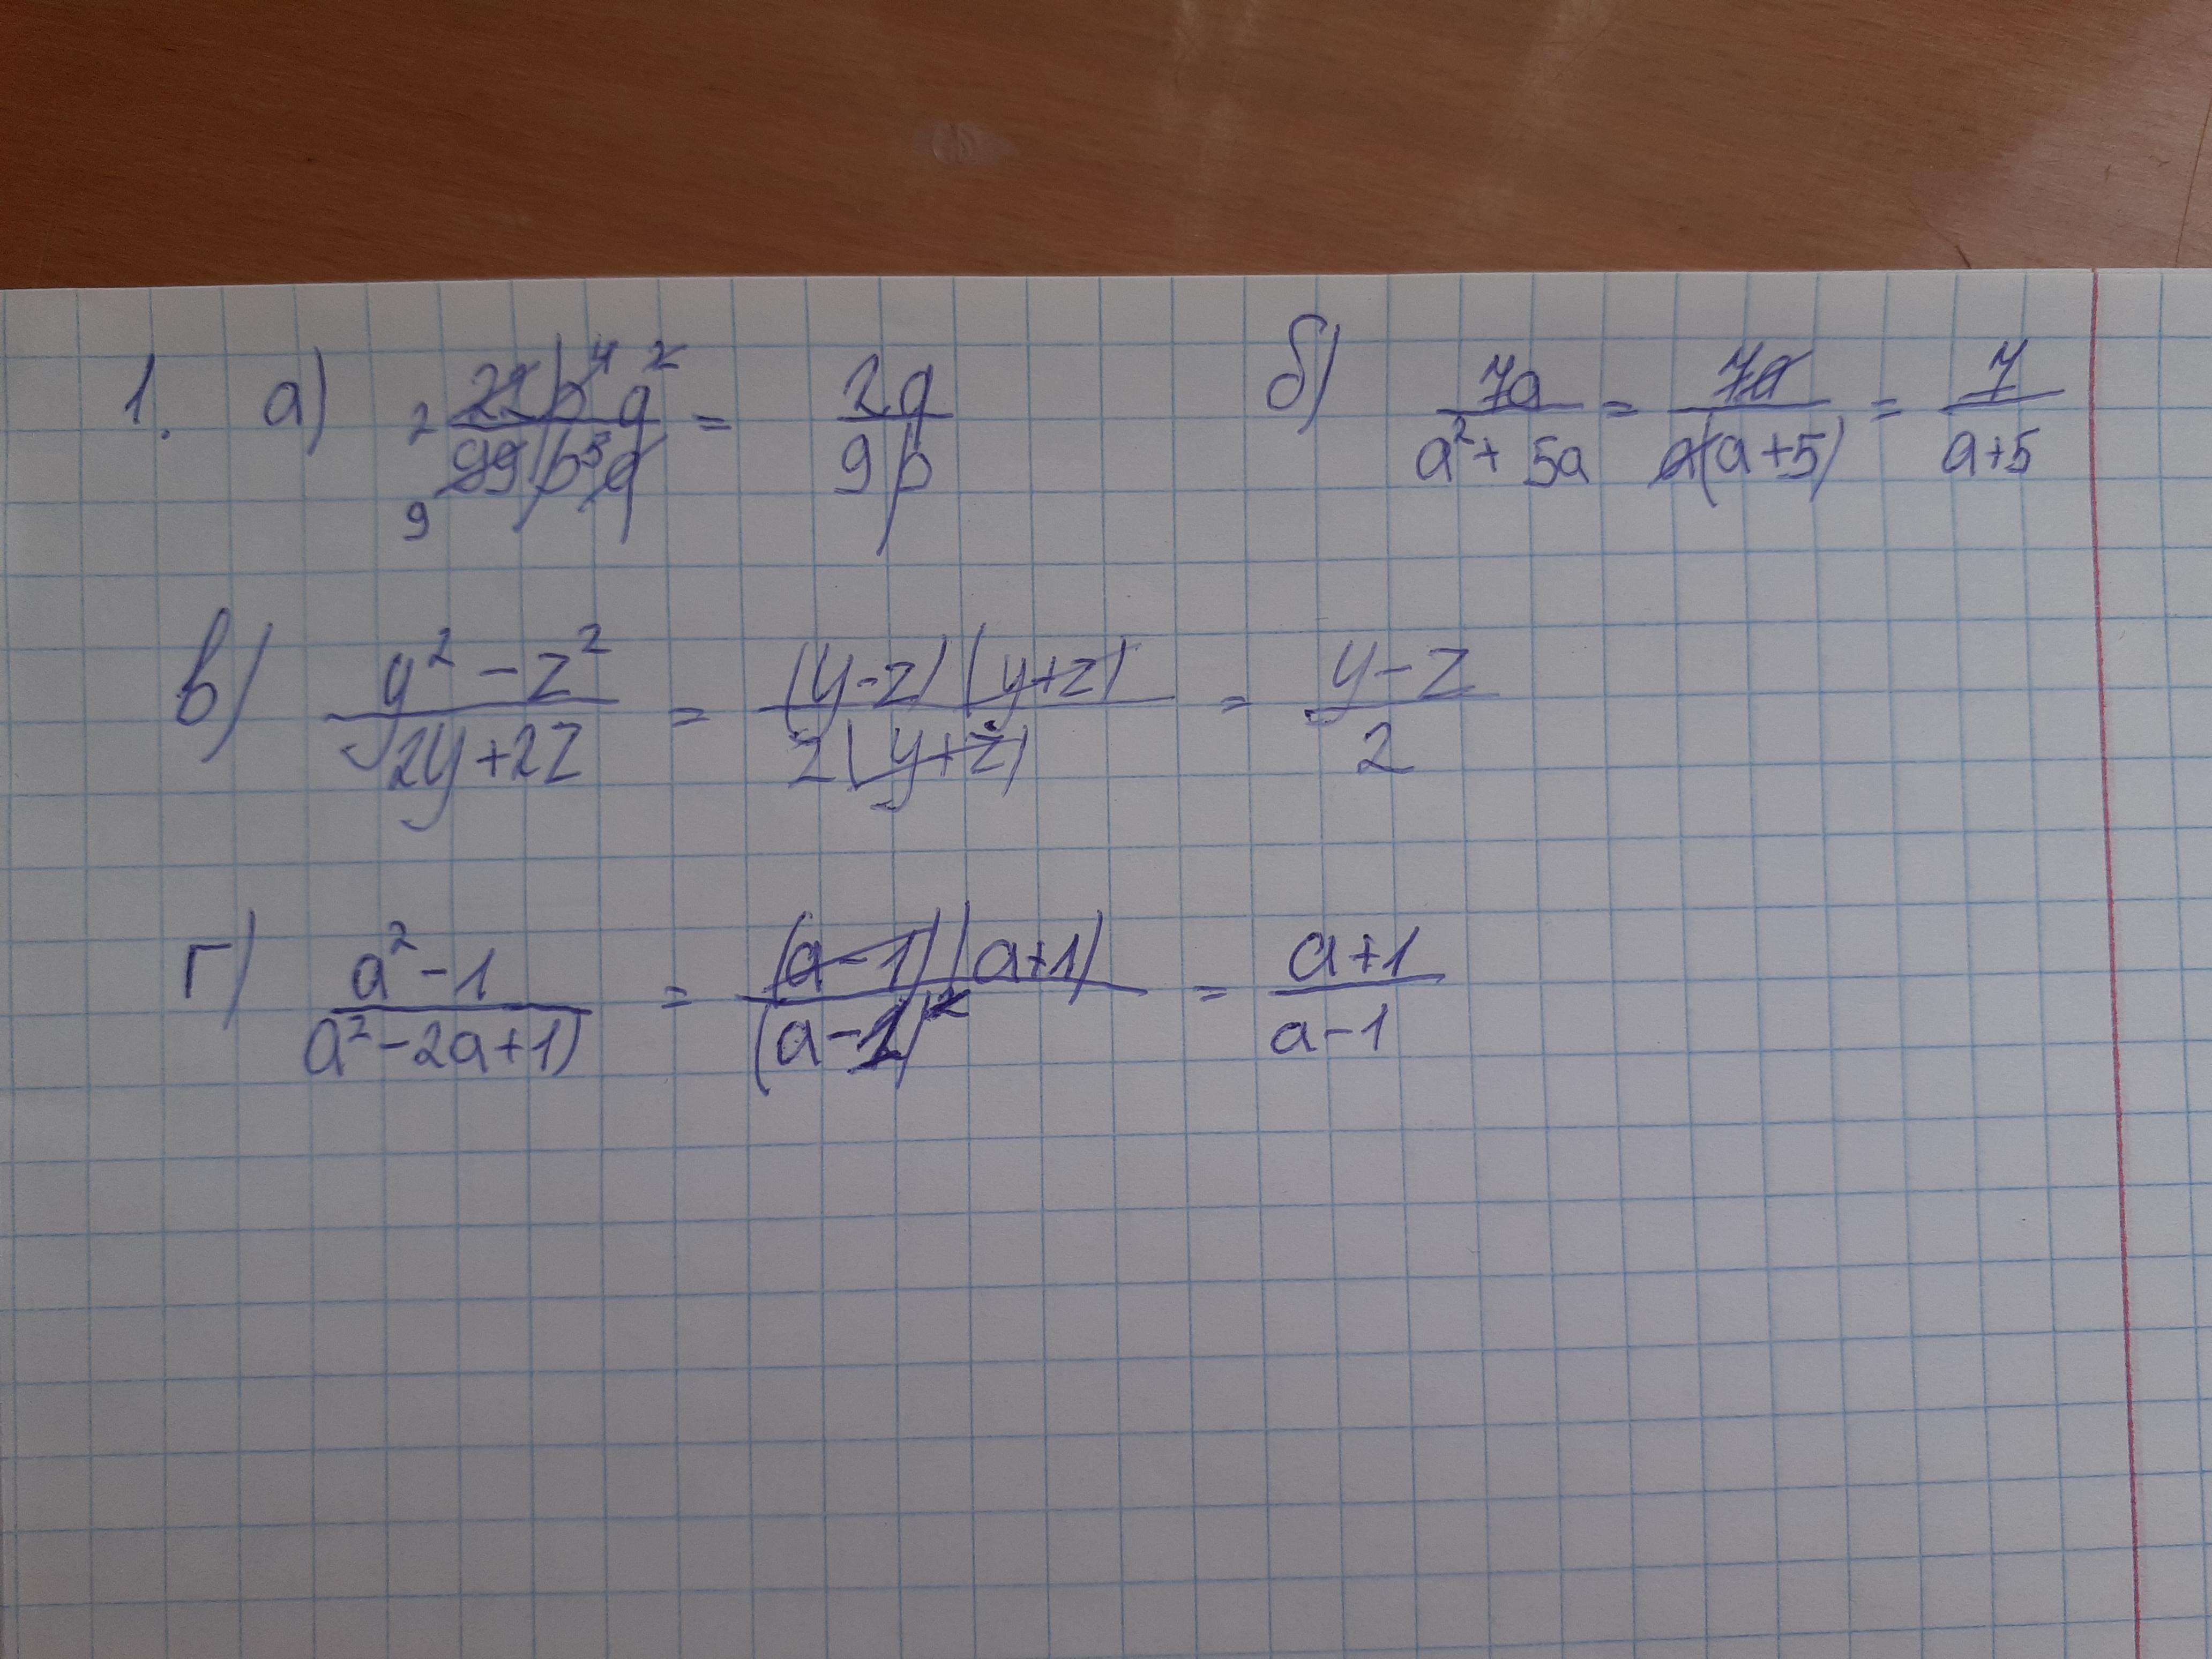 1. а) 2 22p⁴q² / 9 99p⁵q = 2q / 9p б) 7a / a² + 5a = 7a / a(a+5) = 7 / a+5
в) y² − z² / 2y+2z = (y-z)(y+z) / 2(y+z) = y-z / 2
г) a² - 1 / a² - 2a + 1) = (a-1)(a+1) / (a-1)² = a+1 / a-1